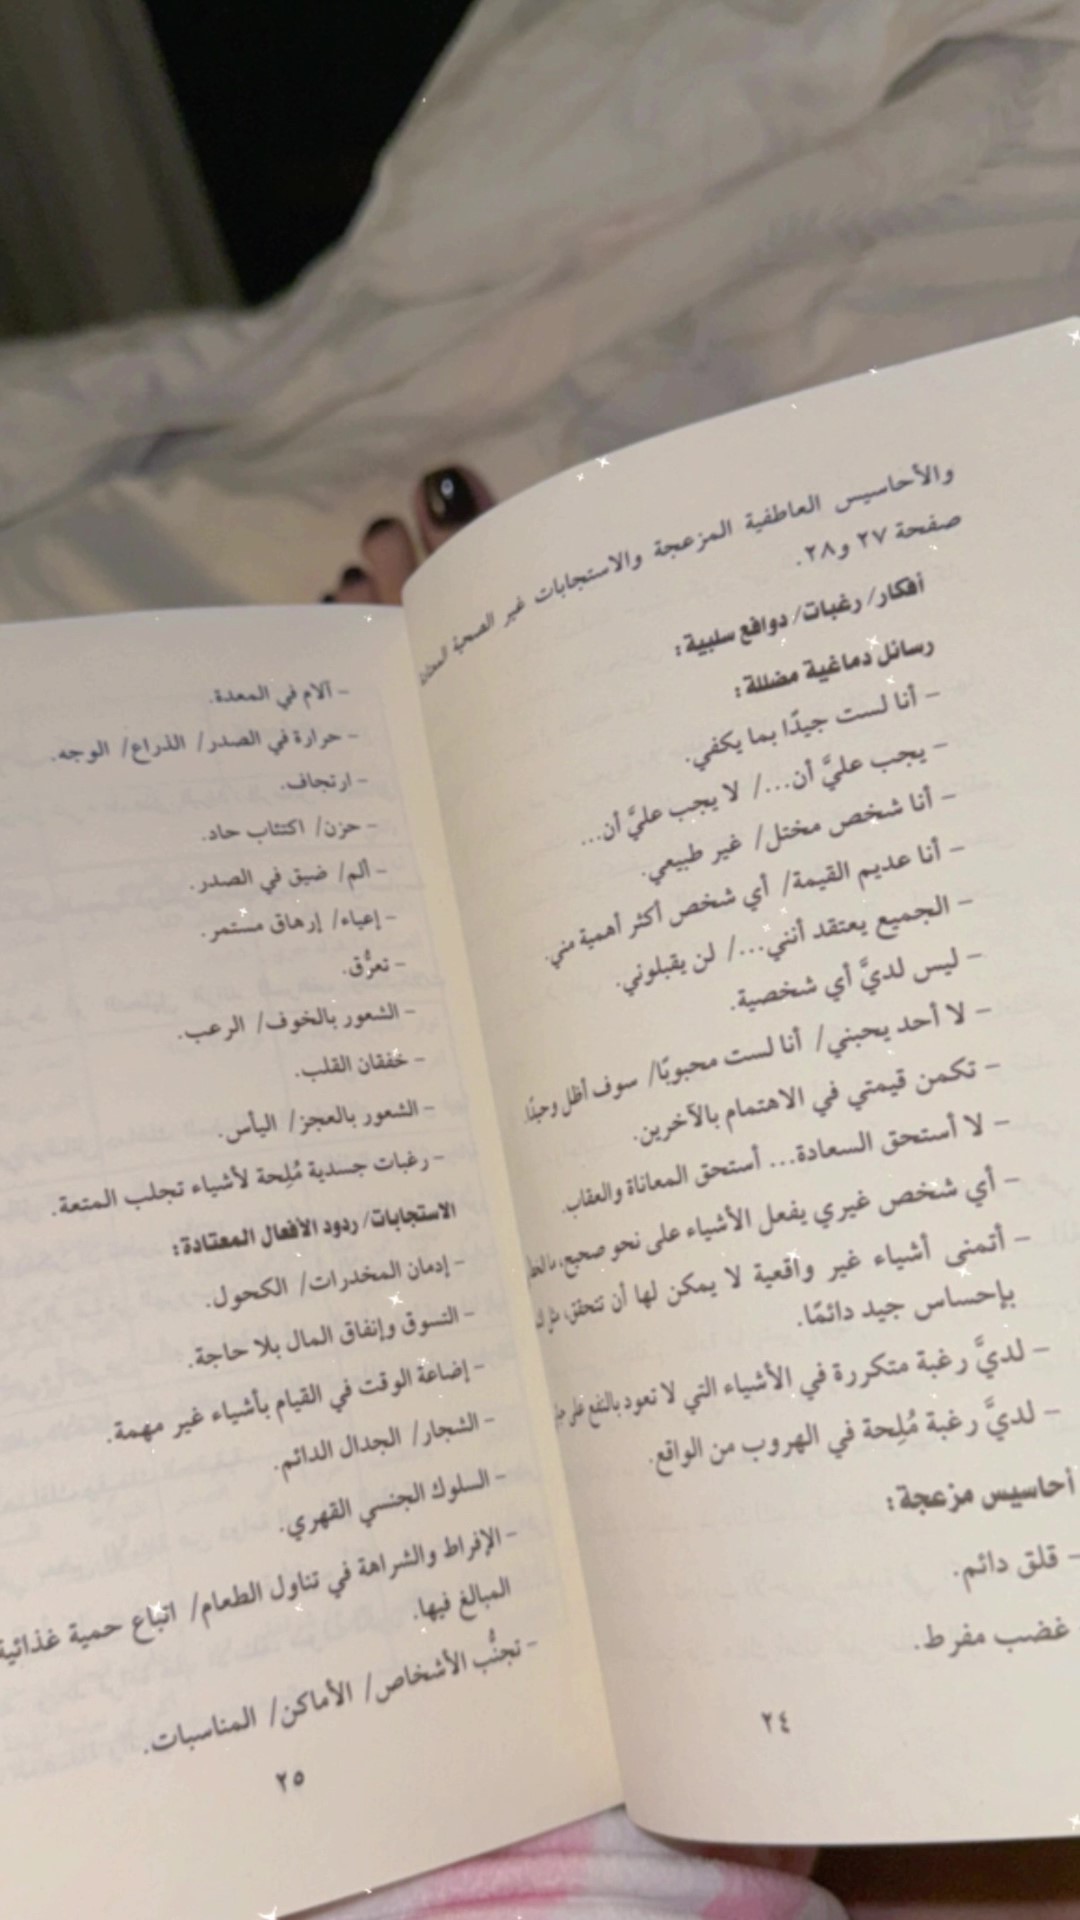 والأحاسيس العاطفية المزعجة والاستجابات غير الصحية المعتادة
صفحة ٢٧ و٢٨.
أفكار/ رغبات/ دوافع سلبية:
رسائل دماغية مضللة:
– أنا لست جيدًا بما يكفي.
– يجب عليَّ أن.../ لا يجب عليَّ أن...
– أنا شخص مختل/ غير طبيعي.
– أنا عديم القيمة/ أي شخص أكثر أهمية مني.
– الجميع يعتقد أنني.../ لن يقبلوني.
– ليس لديَّ أي شخصية.
– لا أحد يحبني/ أنا لست محبوبًا/ سوف أظل وحيدًا.
– تكمن قيمتي في الاهتمام بالآخرين.
– لا أستحق السعادة... أستحق المعاناة والعقاب.
– أي شخص غيري يفعل الأشياء على نحو صحيح،
– أتمنى أشياء غير واقعية لا يمكن لها أن تتحقق،
بإحساس جيد دائمًا.
– لديَّ رغبة متكررة في الأشياء التي لا تعود بالنفع
– لديَّ رغبة مُلِحة في الهروب من الواقع.
أحاسيس مزعجة:
– قلق دائم.
غضب مفرط.
٢٤
– آلام في المعدة.
– حرارة في الصدر/ الذراع/ الوجه.
– ارتجاف.
– حزن/ اكتئاب حاد.
– ألم/ ضيق في الصدر.
– إعياء/ إرهاق مستمر.
– تعرُّق.
– الشعور بالخوف/ الرعب.
– خفقان القلب.
– الشعور بالعجز/ اليأس.
– رغبات جسدية مُلِحة لأشياء تجلب المتعة.
الاستجابات/ ردود الأفعال المعتادة:
– إدمان المخدرات/ الكحول.
– التسوق وإنفاق المال بلا حاجة.
– إضاعة الوقت في القيام بأشياء غير مهمة.
– الشجار/ الجدال الدائم.
– السلوك الجنسي القهري.
– الإفراط والشراهة في تناول الطعام/ اتباع حمية غذائية
المبالغ فيها.
– تجنُّب الأشخاص/ الأماكن/ المناسبات.
٢٥